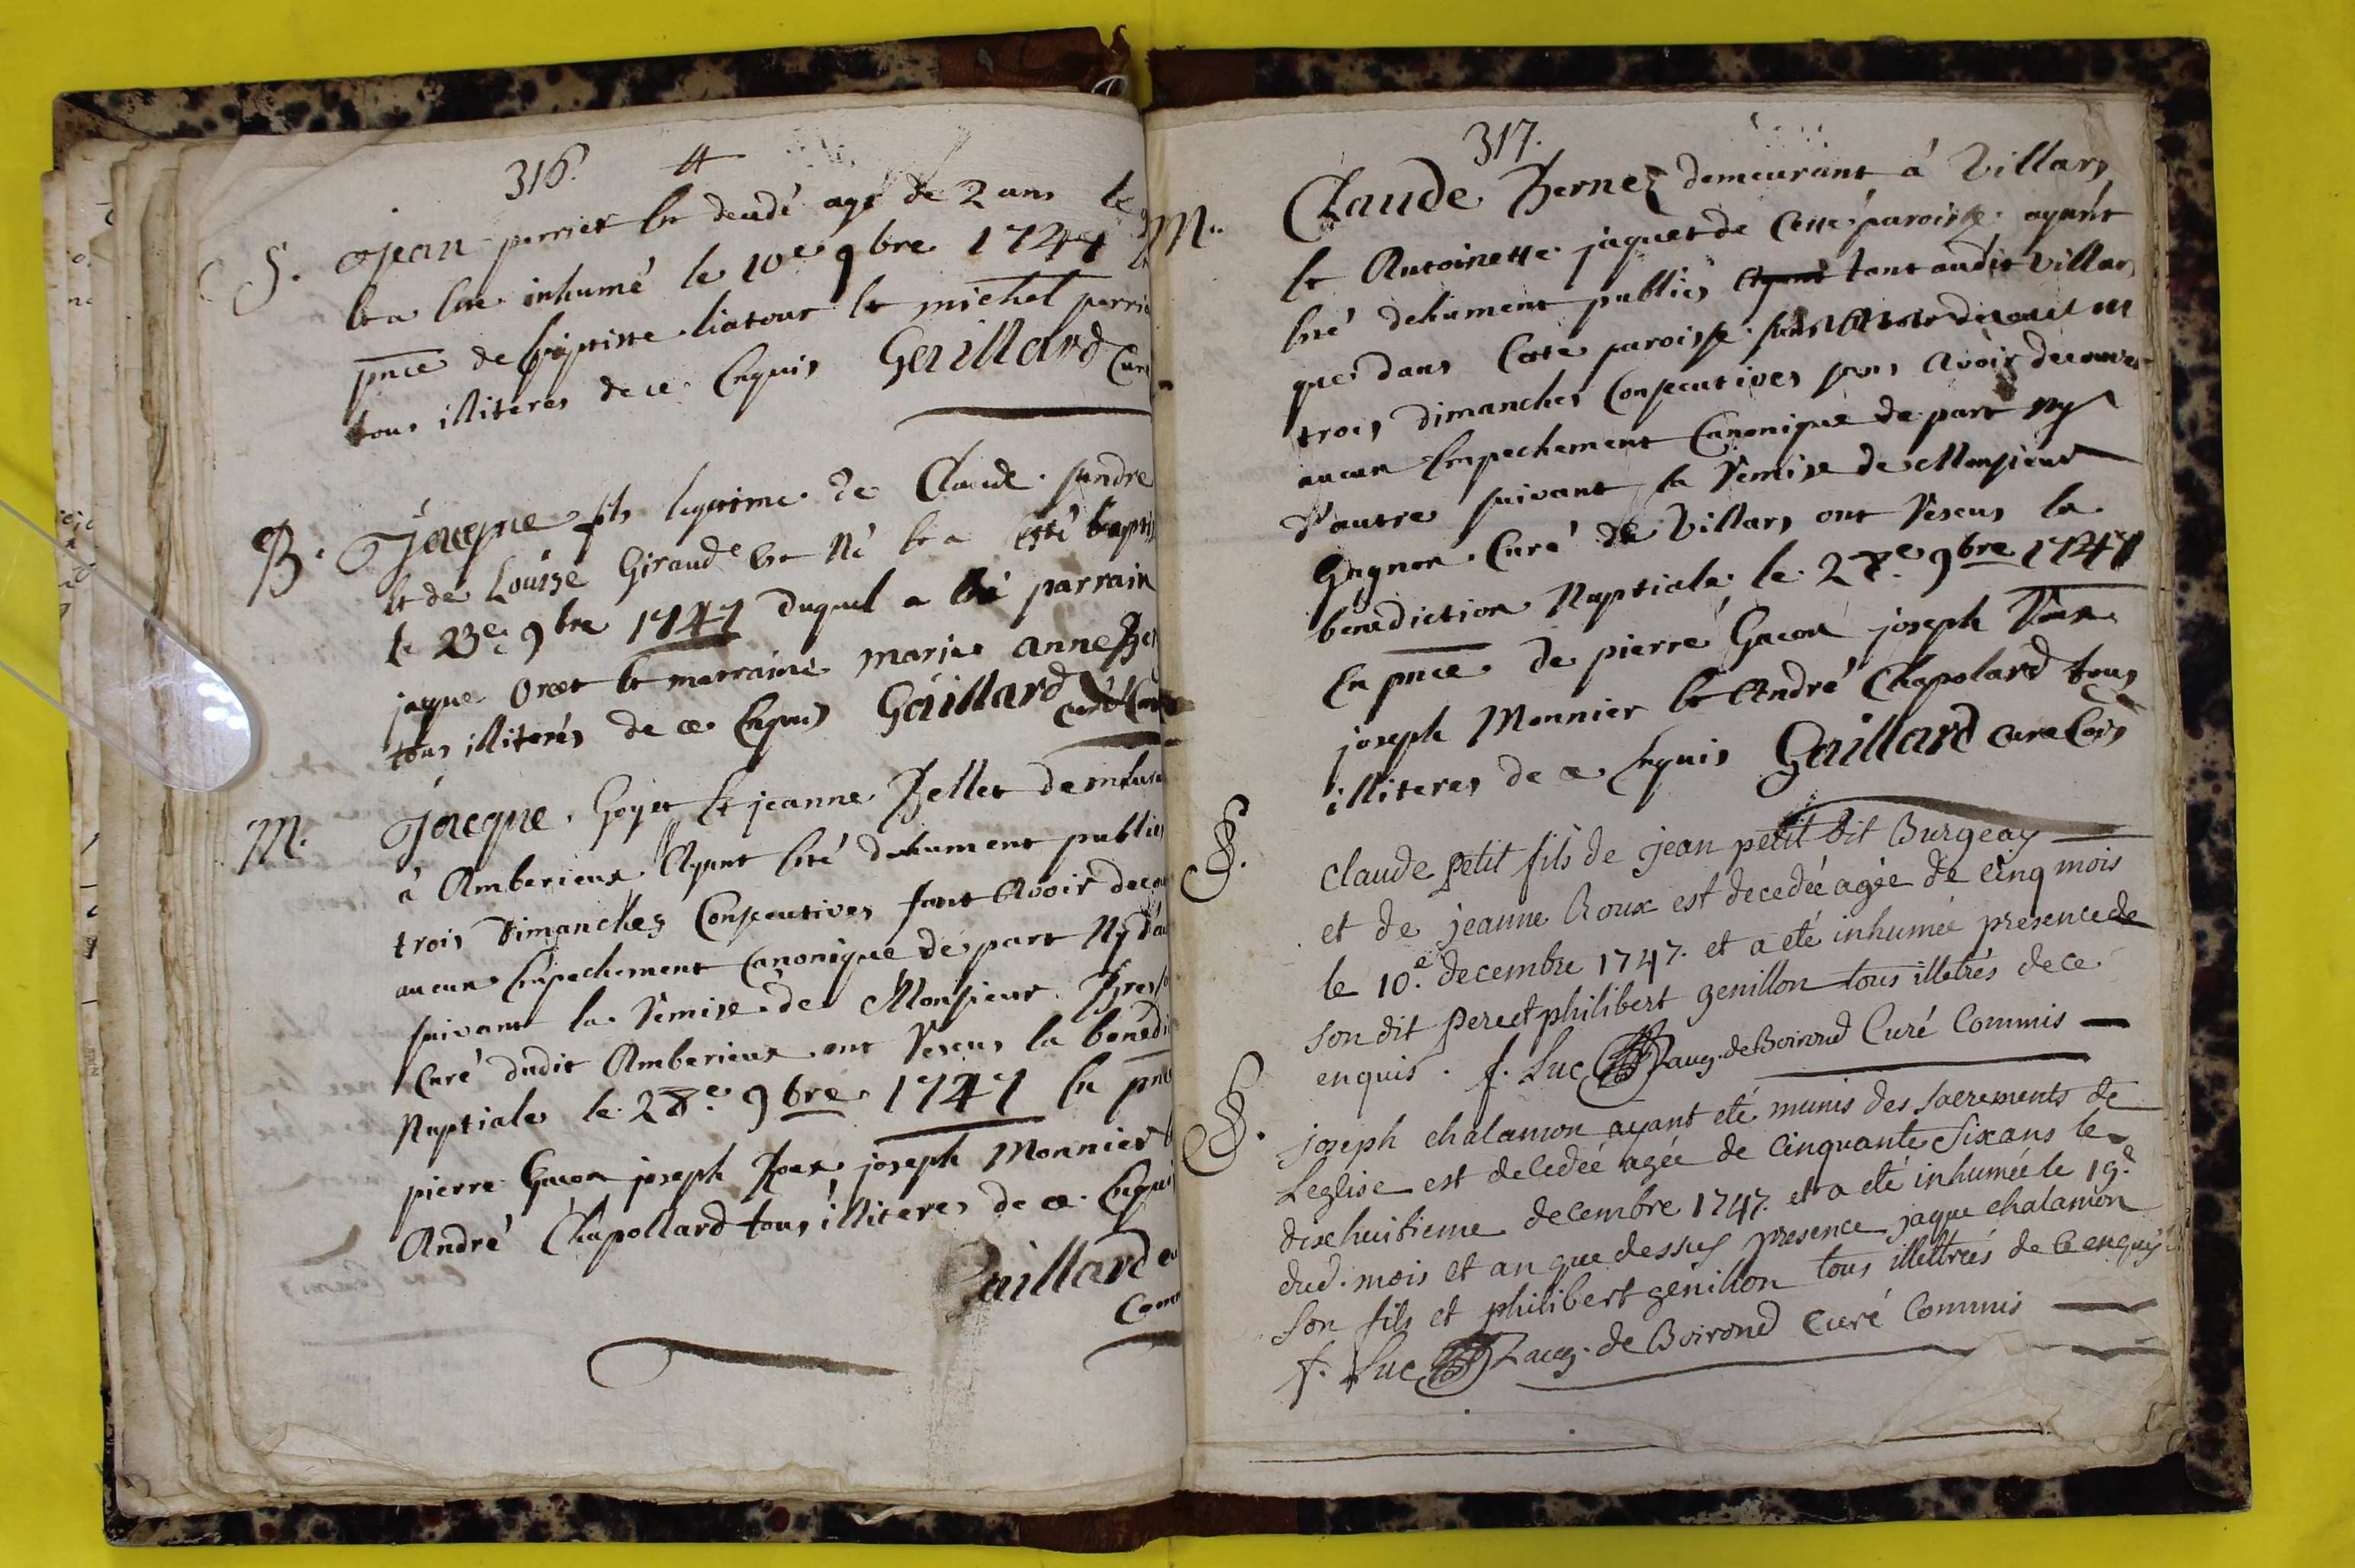 316.
S. Jean perrier est decedé agé de 2 ans le
et a eté inhumé le 10e 9bre 1747
pnce de baptiste et michel perrie
tous illiteres de ce Enquis Gaillard Curé
B. Jacque fils legitime de Claude
et de Louïse Giraud est Né et a esté baptis
le 23e 9bre 1747 duquel a eté parrain
jaque et marraine marie anne
tous illiterés de ce Enquis Gaillard Curé
M. Jacque Goyet et jeanne Bellet
à Amberieux Ayant eté duhument publies
trois Dimanches Consecutives sans Avoir
aucun Empechement Canonique de part Ny
suivant la Remise de Monsieur
Curé dudit Amberieux ont Reseus la
Nuptiale le 28e 9bre 1747 En pnce
pierre Gacon joseph Roux joseph Monnier
André Chapollard tous illiteres de ce Enquis
Gaillard
317.
M. Claude Bernez demeurant à Villars
et Antoinette jaquet de Cette paroisse ayant
eté dehument publiés tant audit Villars
que dans Cette paroisse
trois dimanches Consecutives sans Avoir decouvert
aucun Empechement Canonique de part ny
d'autre suivant la Remise de Monsieur
Gagnon Curé de Villars ont Reseus la
benediction Nuptiale le 28e 9bre 1747
En pnce de pierre Gacon joseph Roux
joseph Monnier et André Chapolard tous
illiteres de ce Enquis Gaillard Curé Cois
S. Claude petit fils de jean petit dit Burgeay
et de jeanne Roux est decedée agée de cinq mois
le 10.e decembre 1747. et a eté inhumée presence de
son dit pere et philibert genillon tous illetrés de ce
enquis. f. Luc aug. de Boirond Curé Commis
S. joseph chalamon ayant eté munis des sacrements de
Leglise est decedée agée de cinquante six ans le
dixhuitieme decembre 1747. et a eté inhumée le 19e
dud. mois et an que dessus presence jaque chalamon
son fils et philibert genillon tous illettrées de ce enquis
f. Luc aug. de Boirond Curé Commis